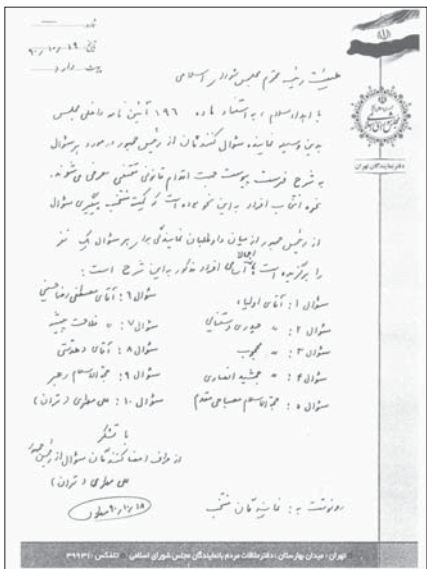 شماره
تاریخ ۹۰/۱۰/۱۹
پیوست دارد
دفتر نمایندگان تهران
هیئت رئیسه محترم مجلس شورای اسلامی
با اهداء سلام، به استناد ماده ۱۹۶ آئین نامه داخلی مجلس
بدین وسیله نماینده سؤال کنندگان از رئیس جمهور در مورد هر سؤال
به شرح فهرست پیوست جهت اقدام قانونی مقتضی معرفی می شوند.
نحوه انتخاب افراد به این نحو بوده است که کمیته منتخب پیگیری سؤال
از رئیس جمهور از میان داوطلبان نمایندگی برای هر سؤال یک نفر
را برگزیده است اسامی افراد مذکور به این شرح است:
سؤال ۱: آقای اولیاء
سؤال ۲: " حیدری دستنایی
سؤال ۳: " محجوب
سؤال ۴: " جمشید انصاری
سؤال ۵: حجةالاسلام مصباحی مقدم
سؤال ۶: آقای مصطفی رضا حسینی
سؤال ۷: " فلاحت پیشه
سؤال ۸: آقای دهدشتی
سؤال ۹: حجةالاسلام رهبر
سؤال ۱۰: علی مطهری (تهران)
با تشکر
از طرف امضا کنندگان سؤال از رئیس جمهور
علی مطهری (تهران)
۹۰/۱۰/۱۸
رونوشت به: نمایندگان منتخب
تهران: میدان بهارستان، دفتر ملاقات مردم با نمایندگان مجلس شورای اسلامی تلفکس: ۳۹۹۳۱